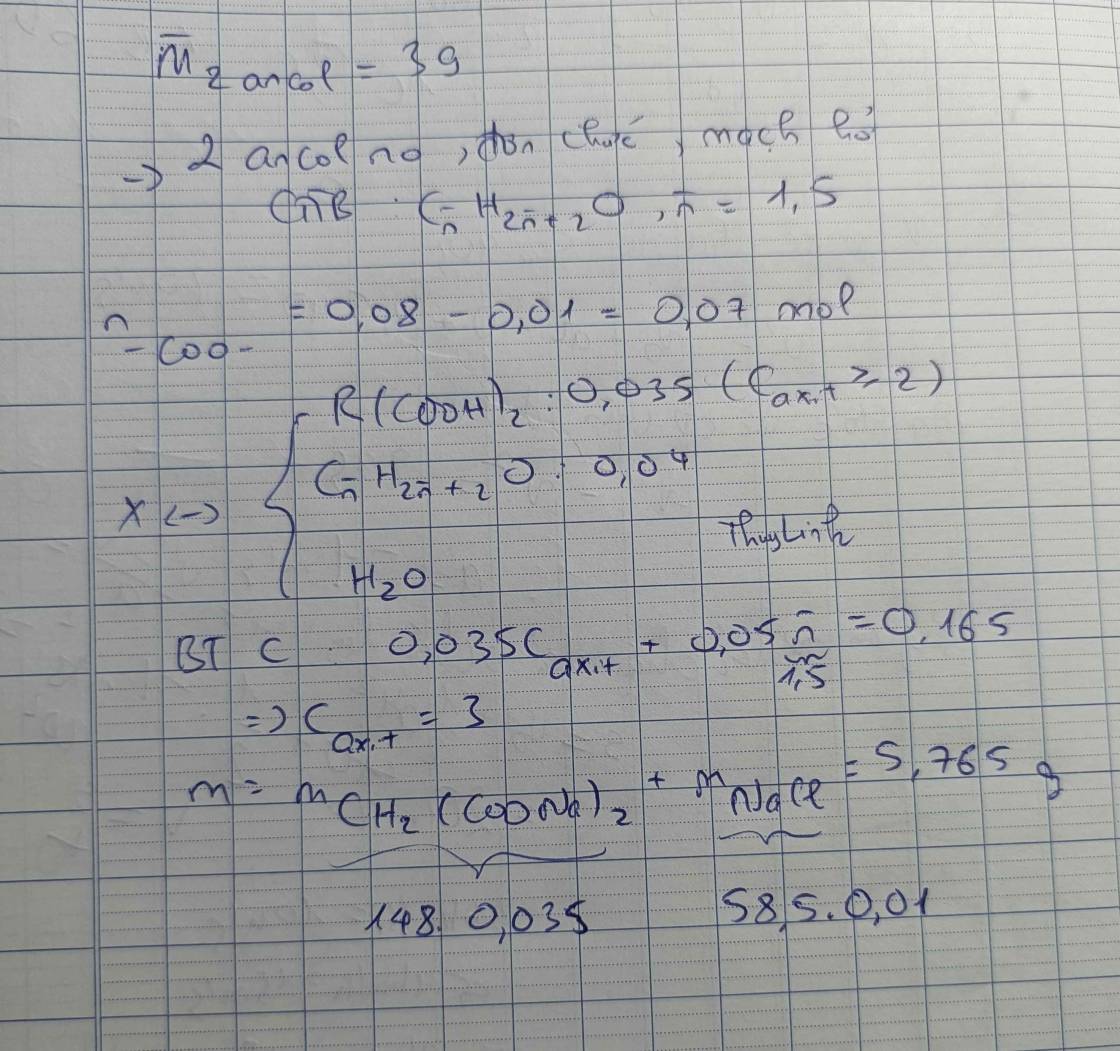 M̄ 2 ancol = 39
→ 2 ancol no, đơn chức, mạch hở
CTTB : Cn̄H2n̄+2O, n̄ = 1,5
n -COO- = 0,08 - 0,01 = 0,07 mol
R(COOH)2 : 0,035 (Caxit ≥ 2)
X <-> { Cn̄H2n̄+2O : 0,04
ThuyLinh
H2O
BT C 0,035Caxit + 0,05 n̄ = 0,165
1,5
=> Caxit = 3
m = mCH2(COONa)2 + mNaCl = 5,765 g
148. 0,035 58,5. 0,01